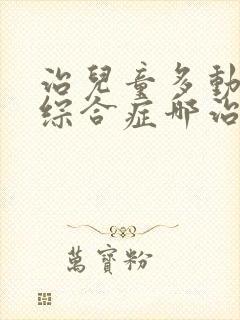 治兒童多動
綜合症邮治
萬寶粉